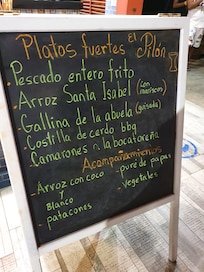 Platos fuertes El Pilón
• Pescado entero frito
• Arroz Santa Isabel (con mariscos)
• Gallina de la abuela (guisada)
• Costilla de cerdo bbq
• Camarones a la bocatoreña
Acompañamientos
- Arroz con coco - puré de papas
y
Blanco - vegetales
- patacones